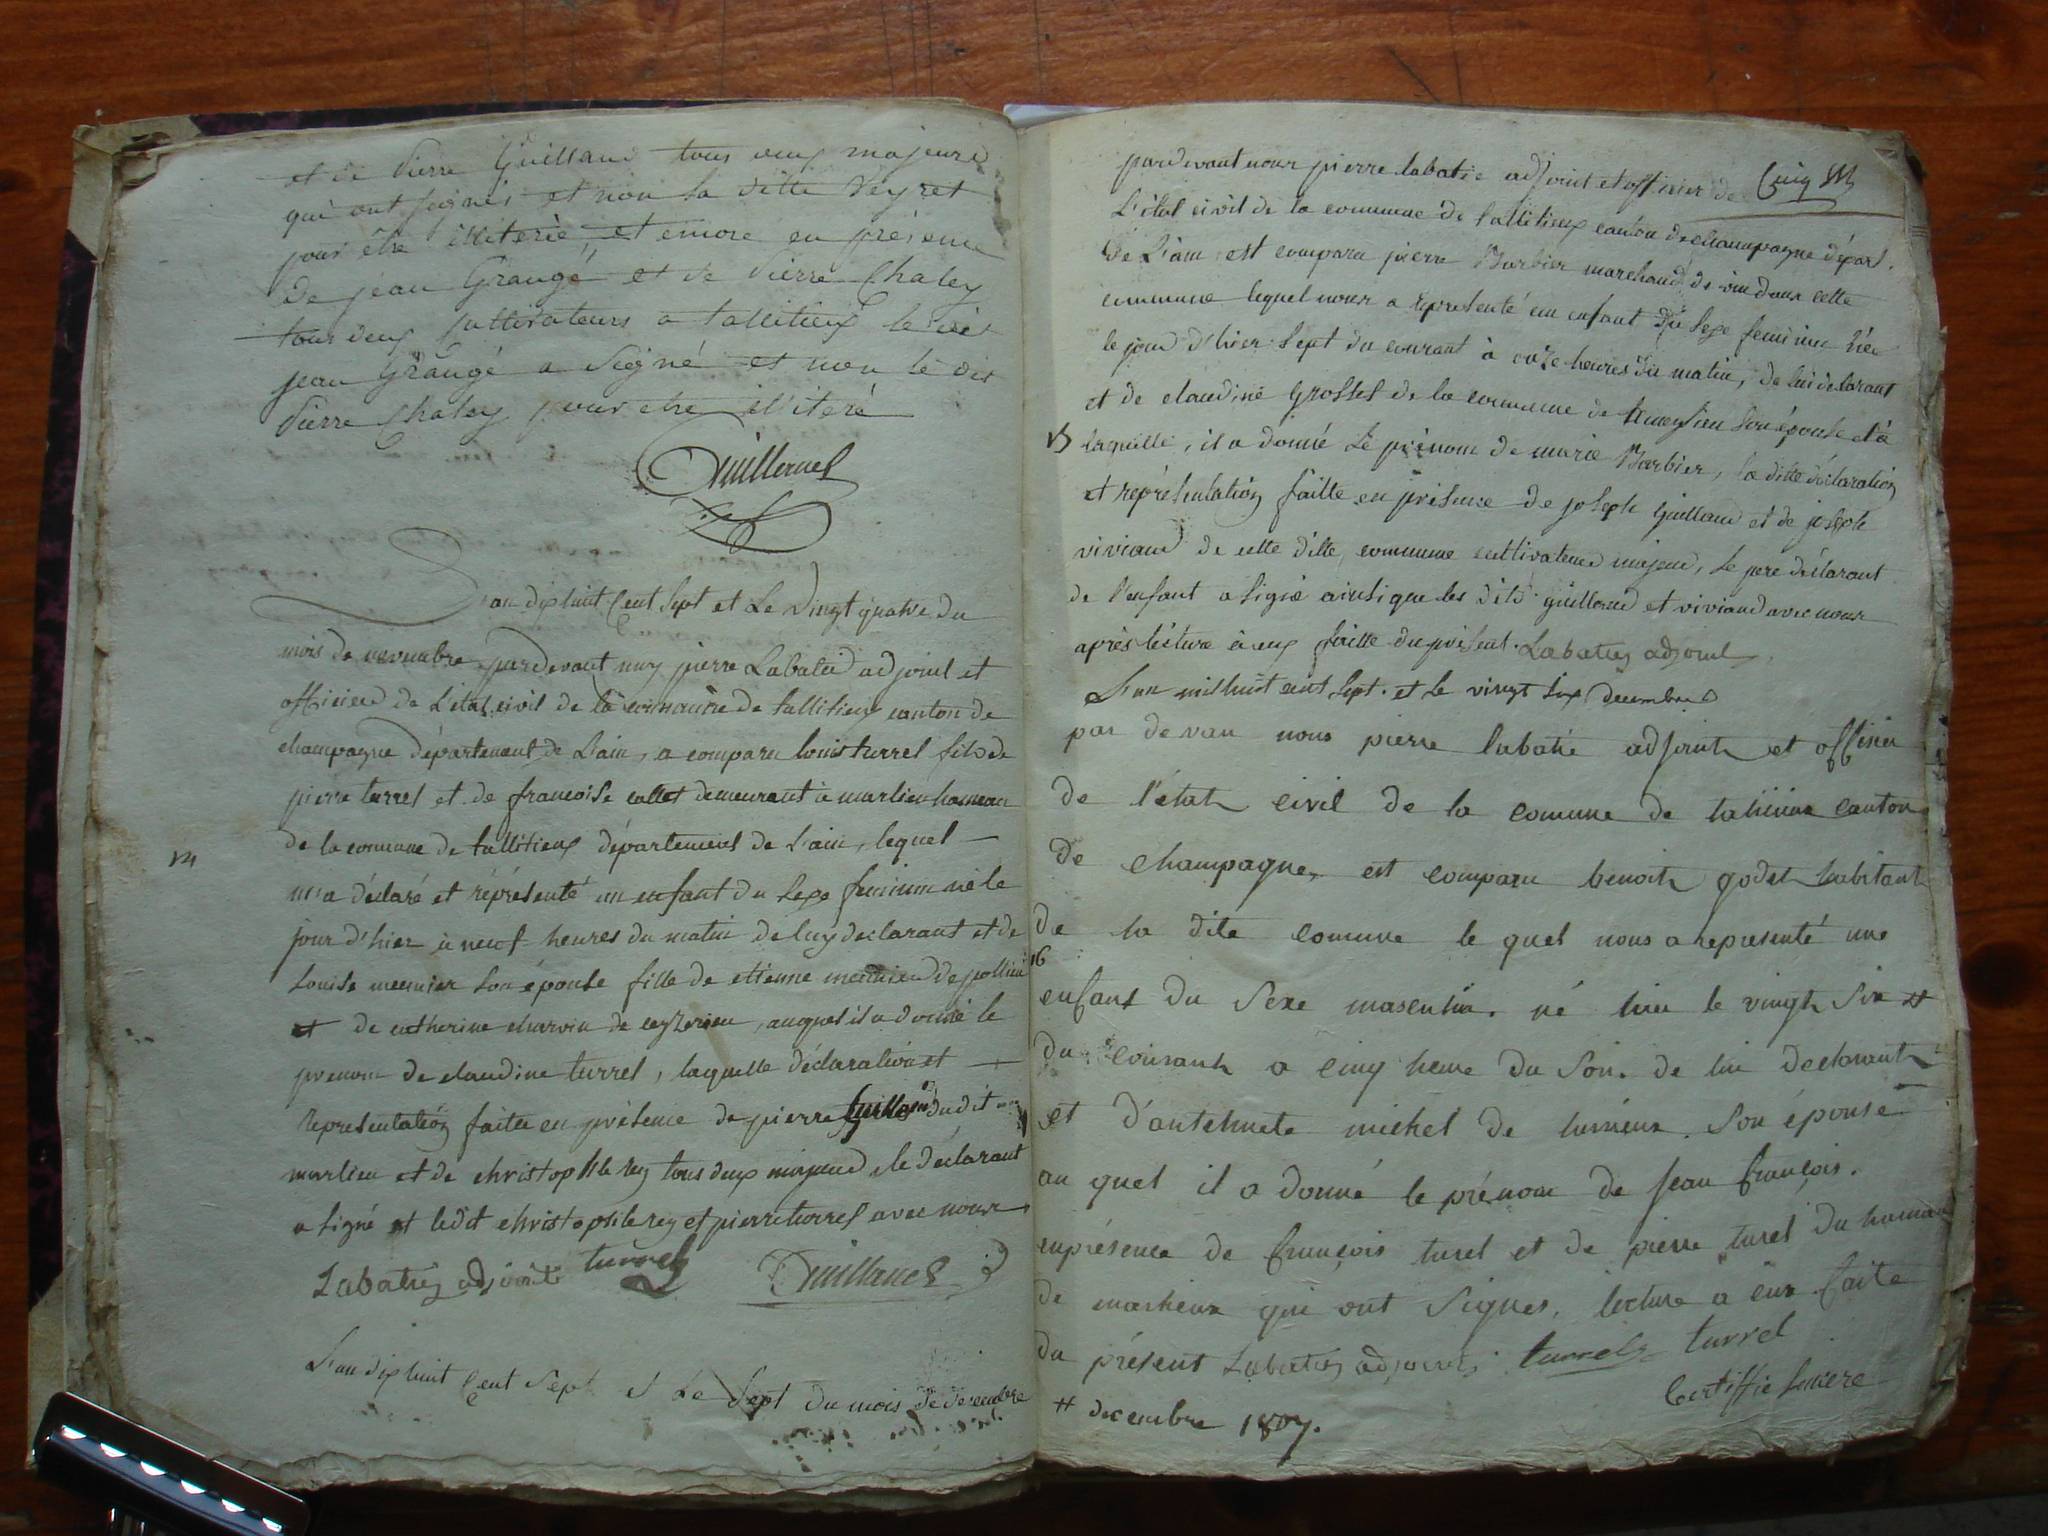 et de Pierre Guilland tous deux majeurs
qui ont signés et non la ditte Veyret
pour être illiterée, et encore en présence
de jean Grangé et de Pierre Chaley
tous deux cultivateurs a tallitieux le dit
jean Grangé a signé et non le dit
Pierre Chaley pour etre illiteré
Guillermet
L'an dix huit Cent Sept et Le Vingt quatre du
mois de novembre pardevant nuy pierre Labatié adjoint et
officier de L'état civil de la commune de tallitieux canton de
champagne département de L'ain, a comparu louis turrel fils de
pierre turrel et de francoise collet demeurant a marlieu hameau
de la commune de tallitieux département de L'ain, lequel
14
m'a déclaré et réprésenté un enfant du sexe feminin né le
jour d'hier à neuf heures du matin de luy declarant et de
Louise meunier son épouse fille de etienne meunier de pollieu
et de catherine charvin de ceyzerieu, auquel il a donné le
prenom de claudine turrel, laquelle déclaration et
representation faitte en présence de pierre Guilland dudit
marlieu et de christophle rey tous deux majeurs, le déclarant
a signé et ledit christophle rey et pierre turrel avec nous
Labatié adjoint turrel Guillamet
L'an dix huit Cent Sept et Le Sept du mois de decembre
Cinq
pardevant nous pierre labatie adjoint et officier de
L'état civil de la commune de tallitieux canton de champagne dépar.
de L'ain est comparu pierre Barbier marchand de vin dans cette
commune lequel nous a representé un enfant du sexe feminin née
le jour d'hier sept du courant à onze heures du matin, de lui declarant
et de claudine Grosset de la commune de son épouse et à
15
laquelle, il a donné Le prénom de marie Barbier, la ditte déclaration
et représentation faitte en présence de joseph Guilland et de joseph
viviand de cette ditte commune cultivateurs majeurs, le pere déclarant
de l'enfant a signé ainsi que les dits guilland et viviand avec nous
après lécture à eux faitte du présent. Labatié adjoint
L'an mil huit cent sept. et le vingt six decembre
par devan nous pierre labatié adjoint et officier
de l'état civil de la comune de talissieux canton
de champagne, est comparu benoit godet habitant
de la dite comune le quel nous a representé une
16
enfant du Sexe masculin. né hier le vingt Six #
du courant a cinq heure du Soir. de lui declarant
et d'antelmete michel de lumieux. Son épouse
au quel il a donné le prénom de Jean françois.
enprésence de françois turel et de pierre turel du hameau
de marlieux qui ont Signes, lecture a eux faite
du présent Labatié adjoint turrel turrel
Certiffié Sincere
# decembre 1807.